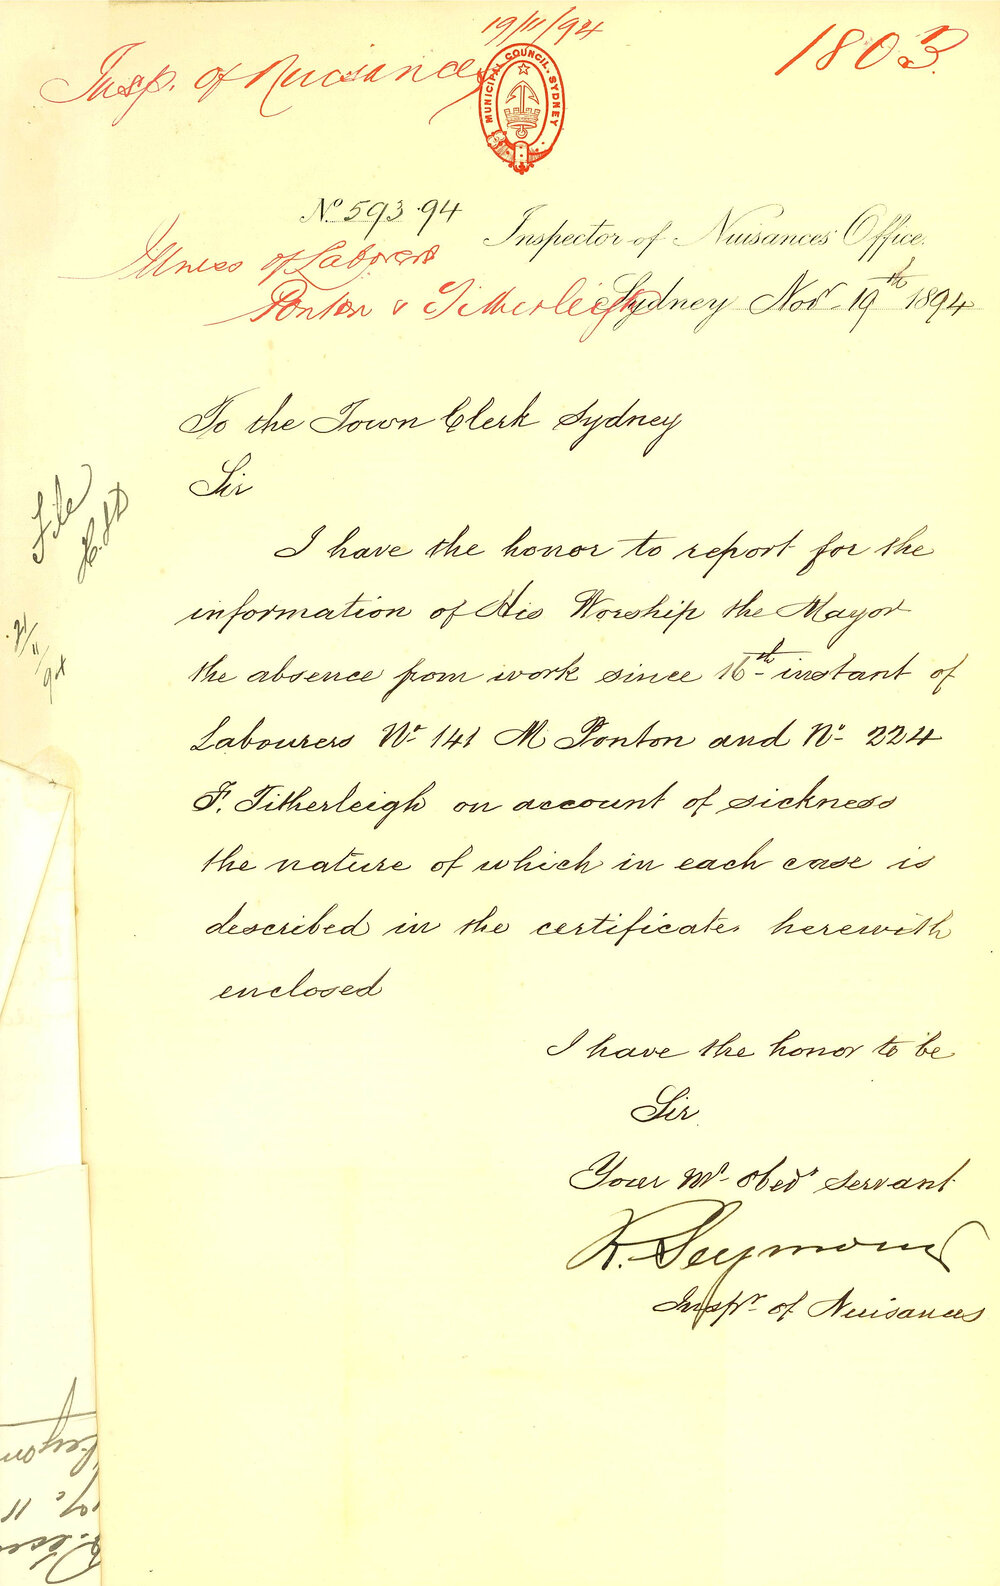 19/11/94
1803.
Insp. of Nuisances
MUNICIPAL COUNCIL. SYDNEY
No 593.94
Inspector of Nuisances' Office.
Illness of Laborers
Ponton & Titherleigh
Sydney Novr 19th 1894
To the Town Clerk Sydney
Sir
File
21/11/94
I have the honor to report for the
information of His Worship the Mayor
the absence from work since 16th instant of
Labourers No 141 M Ponton and No 224
F. Titherleigh on account of sickness
the nature of which in each case is
described in the certificates herewith
enclosed
I have the honor to be
Sir
Your Mt Obedt servant
R. Seymour
Inspr of Nuisances